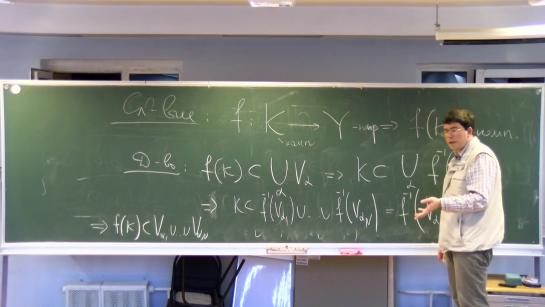 Сл-вие: f: K → Y - непр ⇒ f(K) комп.
комп
Д-во: f(K) ⊂ ∪ V_α ⇒ K ⊂ ∪ f⁻¹
α α
⇒ K ⊂ f⁻¹(V_α₁) ∪ .. ∪ f⁻¹(V_α_N) = f⁻¹(
⇒ f(K) ⊂ V_α₁ ∪ .. ∪ V_α_N